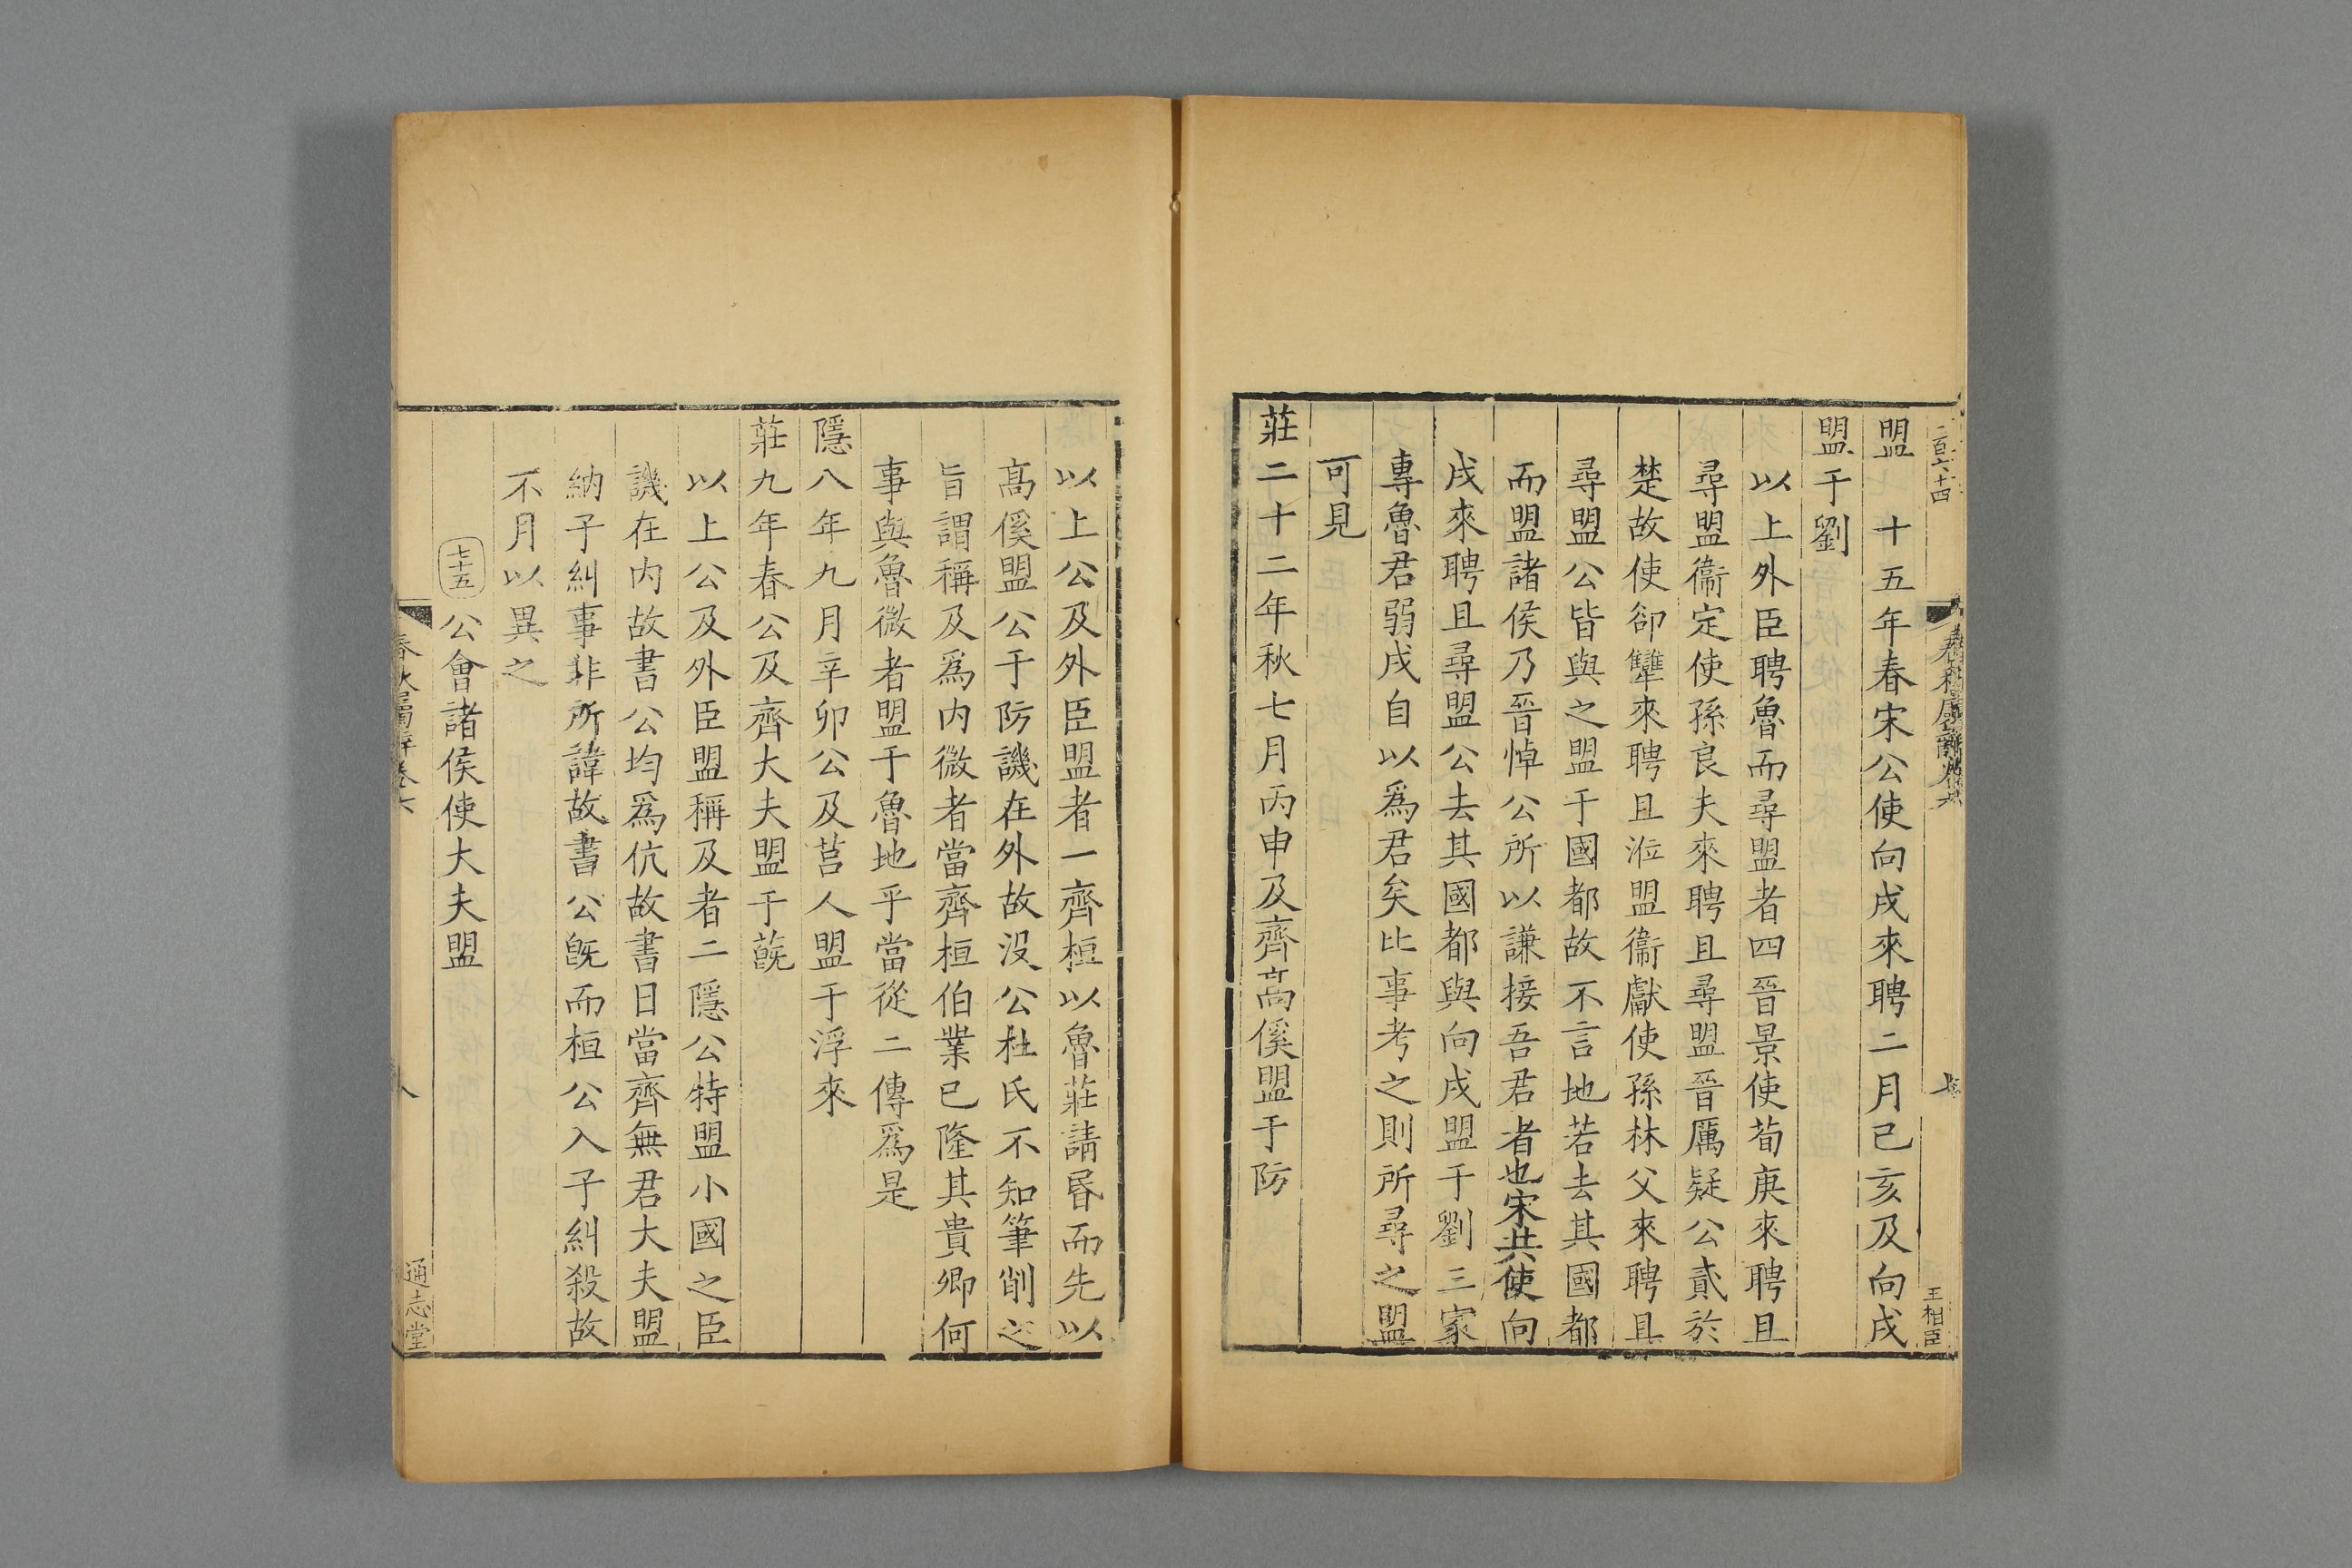 二百六十四
春秋屬辭卷六
七
王相臣
盟　十五年春宋公使向戌來聘二月己亥及向戌
盟于劉
以上外臣聘魯而尋盟者四晉景使荀庚來聘且
尋盟衞定使孫良夫來聘且尋盟晉厲疑公貳於
楚故使卻犨來聘且涖盟衞獻使孫林父來聘且
尋盟公皆與之盟于國都故不言地若去其國都
而盟諸侯乃晉悼公所以謙接吾君者也宋共使向
戌來聘且尋盟公去其國都與向戌盟于劉三家
專魯君弱戌自以爲君矣比事考之則所尋之盟
可見
莊二十二年秋七月丙申及齊高傒盟于防
以上公及外臣盟者一齊桓以魯莊請昏而先以
高傒盟公于防譏在外故没公杜氏不知筆削之
旨謂稱及爲内微者當齊桓伯業已隆其貴卿何
事與魯微者盟于魯地乎當從二傳爲是
隱八年九月辛卯公及莒人盟于浮來
莊九年春公及齊大夫盟于蔇
以上公及外臣盟稱及者二隱公特盟小國之臣
譏在内故書公均爲伉故書日當齊無君大夫盟
納子糾事非所諱故書公旣而桓公入子糾殺故
不月以異之
七十五 公會諸侯使大夫盟
春秋屬辭卷六
八
通志堂